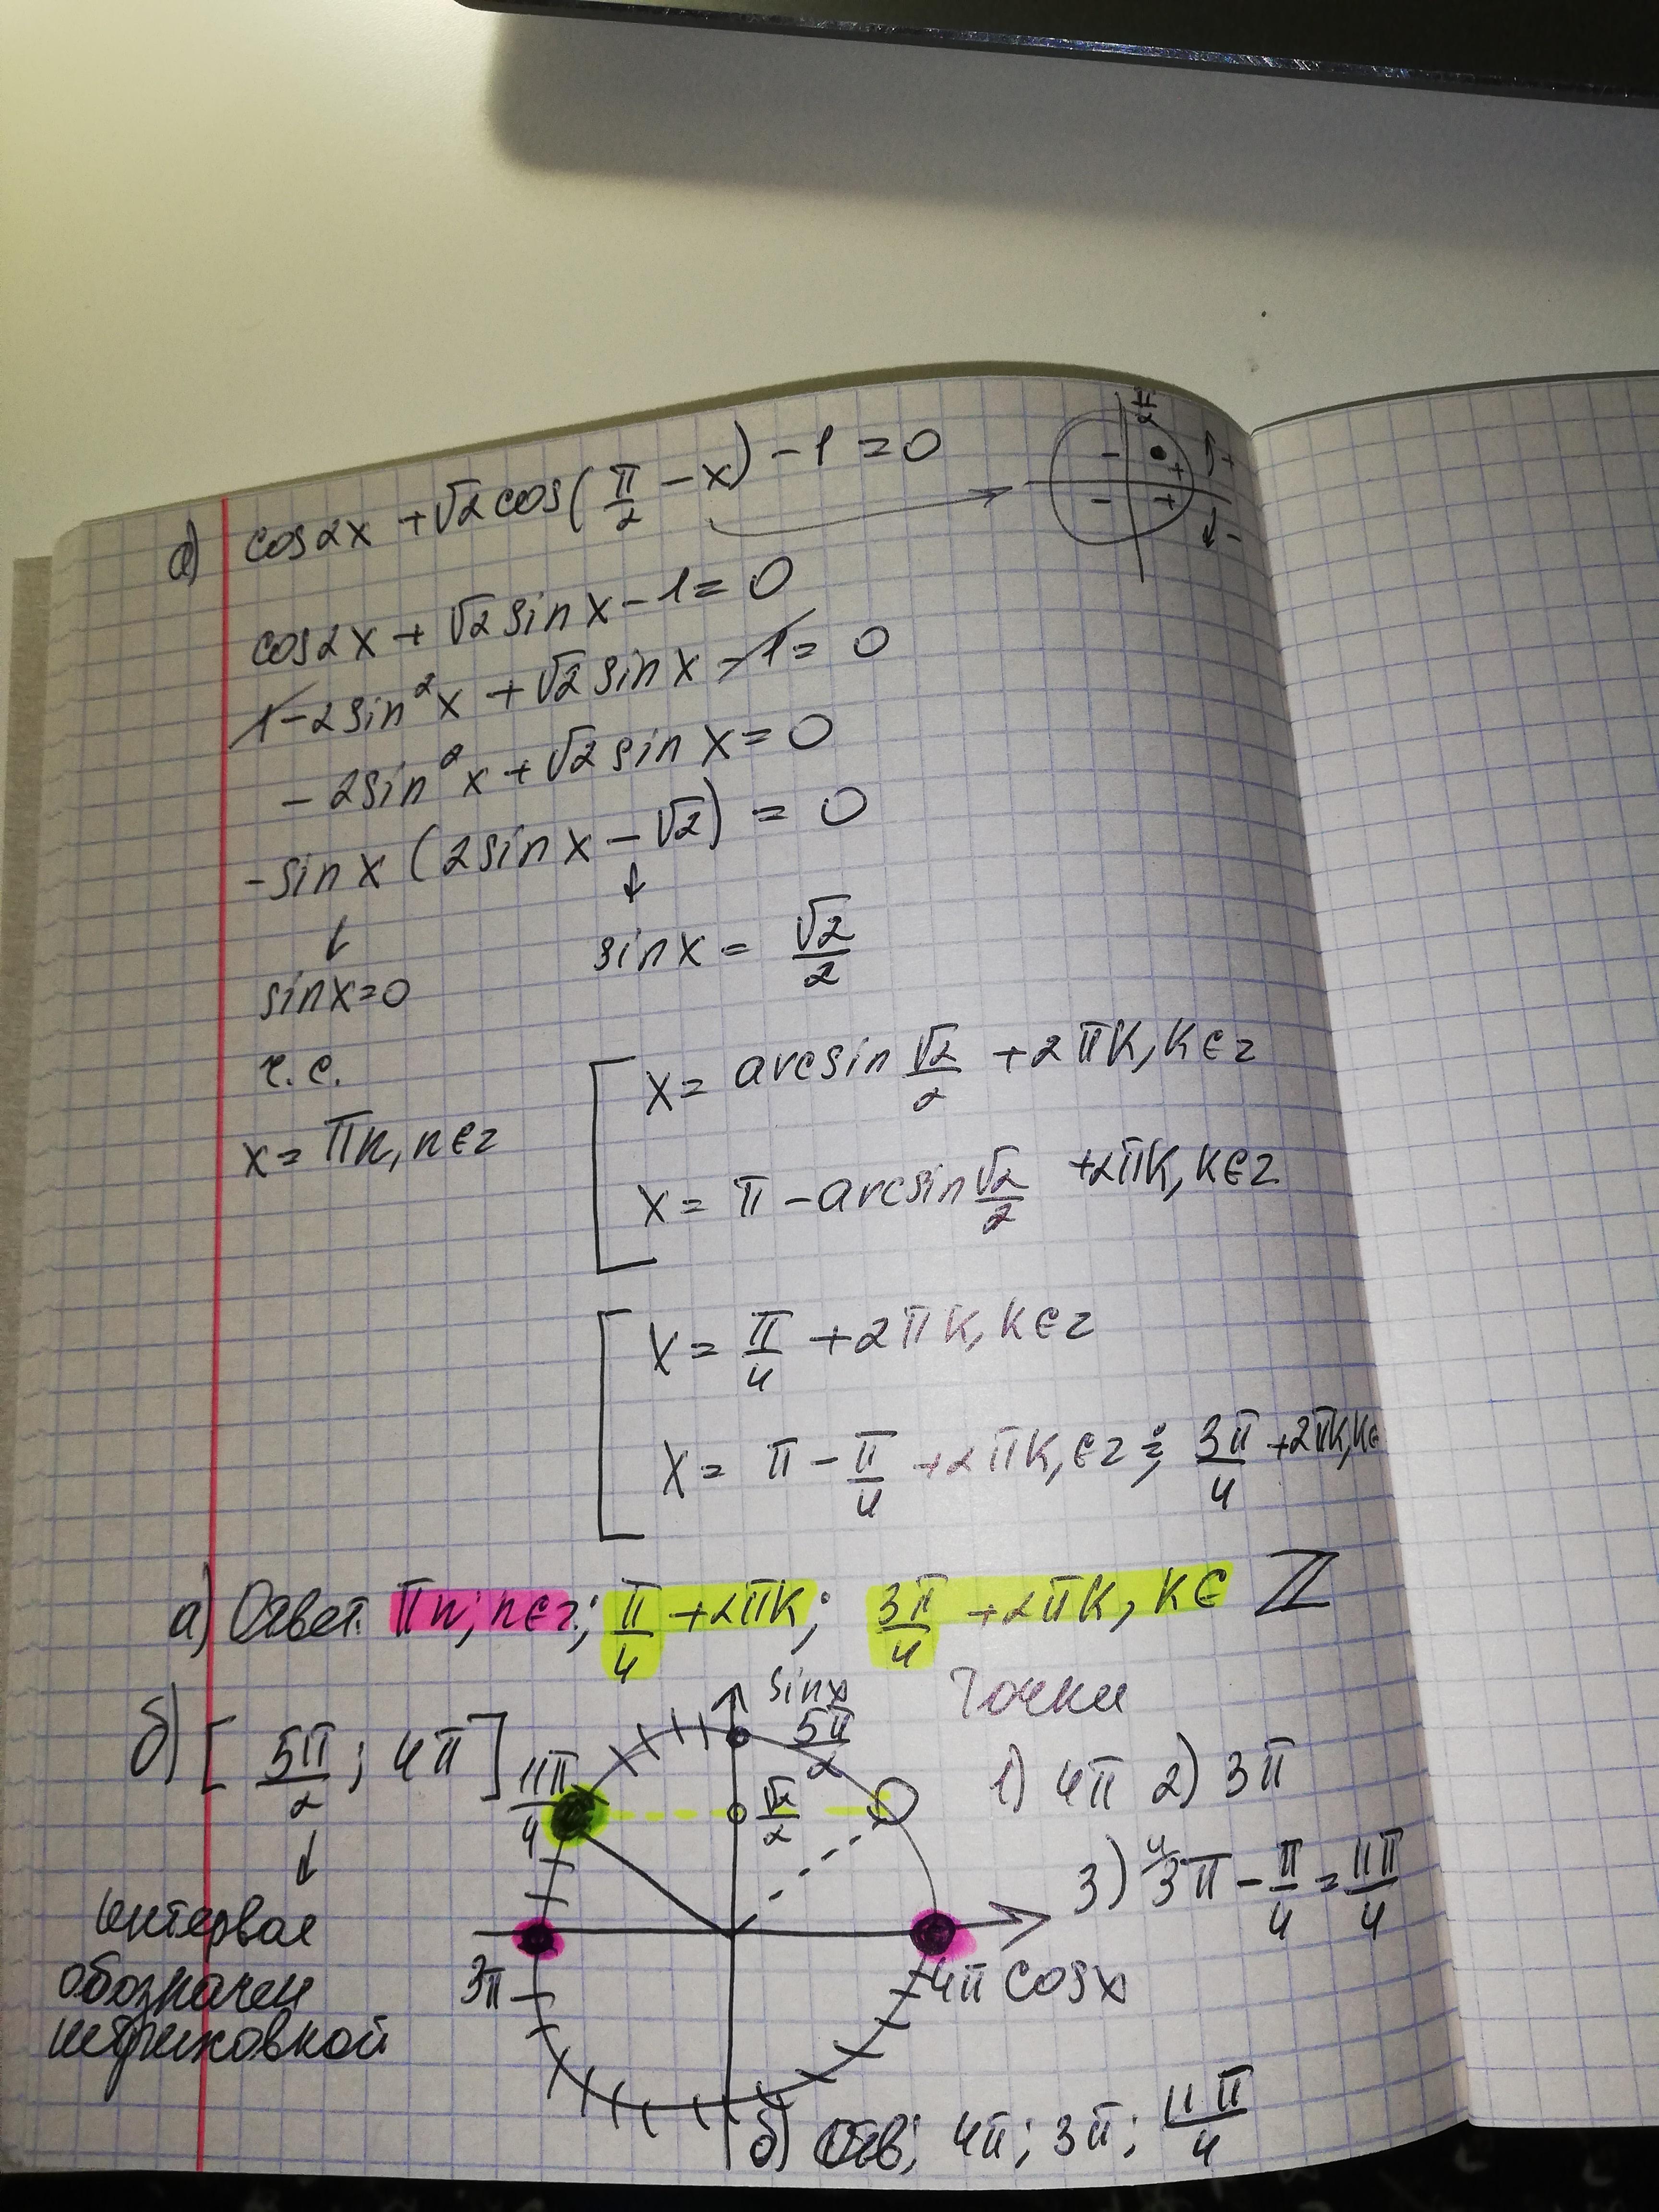 а) cos2x + √2 cos(π/2 − x) − 1 = 0
π/2
− + ↑+
− + ↓−
cos2x + √2 sinx − 1 = 0
1 − 2sin²x + √2 sinx − 1 = 0
− 2sin²x + √2 sinx = 0
−sinx (2sinx − √2) = 0
↓ ↓
sinx=0 sinx = √2/2
ч.с.
x = πn, n∈z
x = arcsin √2/2 + 2πk, k∈z
x = π − arcsin √2/2 + 2πk, k∈z
x = π/4 + 2πk, k∈z
x = π − π/4 + 2πk, ∈z ; 3π/4 + 2πk, k∈
а) Ответ: πn; n∈z; π/4 + 2πk; 3π/4 + 2πk, k∈ ℤ
б) [5π/2; 4π]
↓
интервал
обозначен
штриховкой
sinx
5π/2
11π/4
√2/2
3π
4π cosx
Точки
1) 4π 2) 3π
3) 3π − π/4 = 11π/4
б) Отв; 4π; 3π; 11π/4